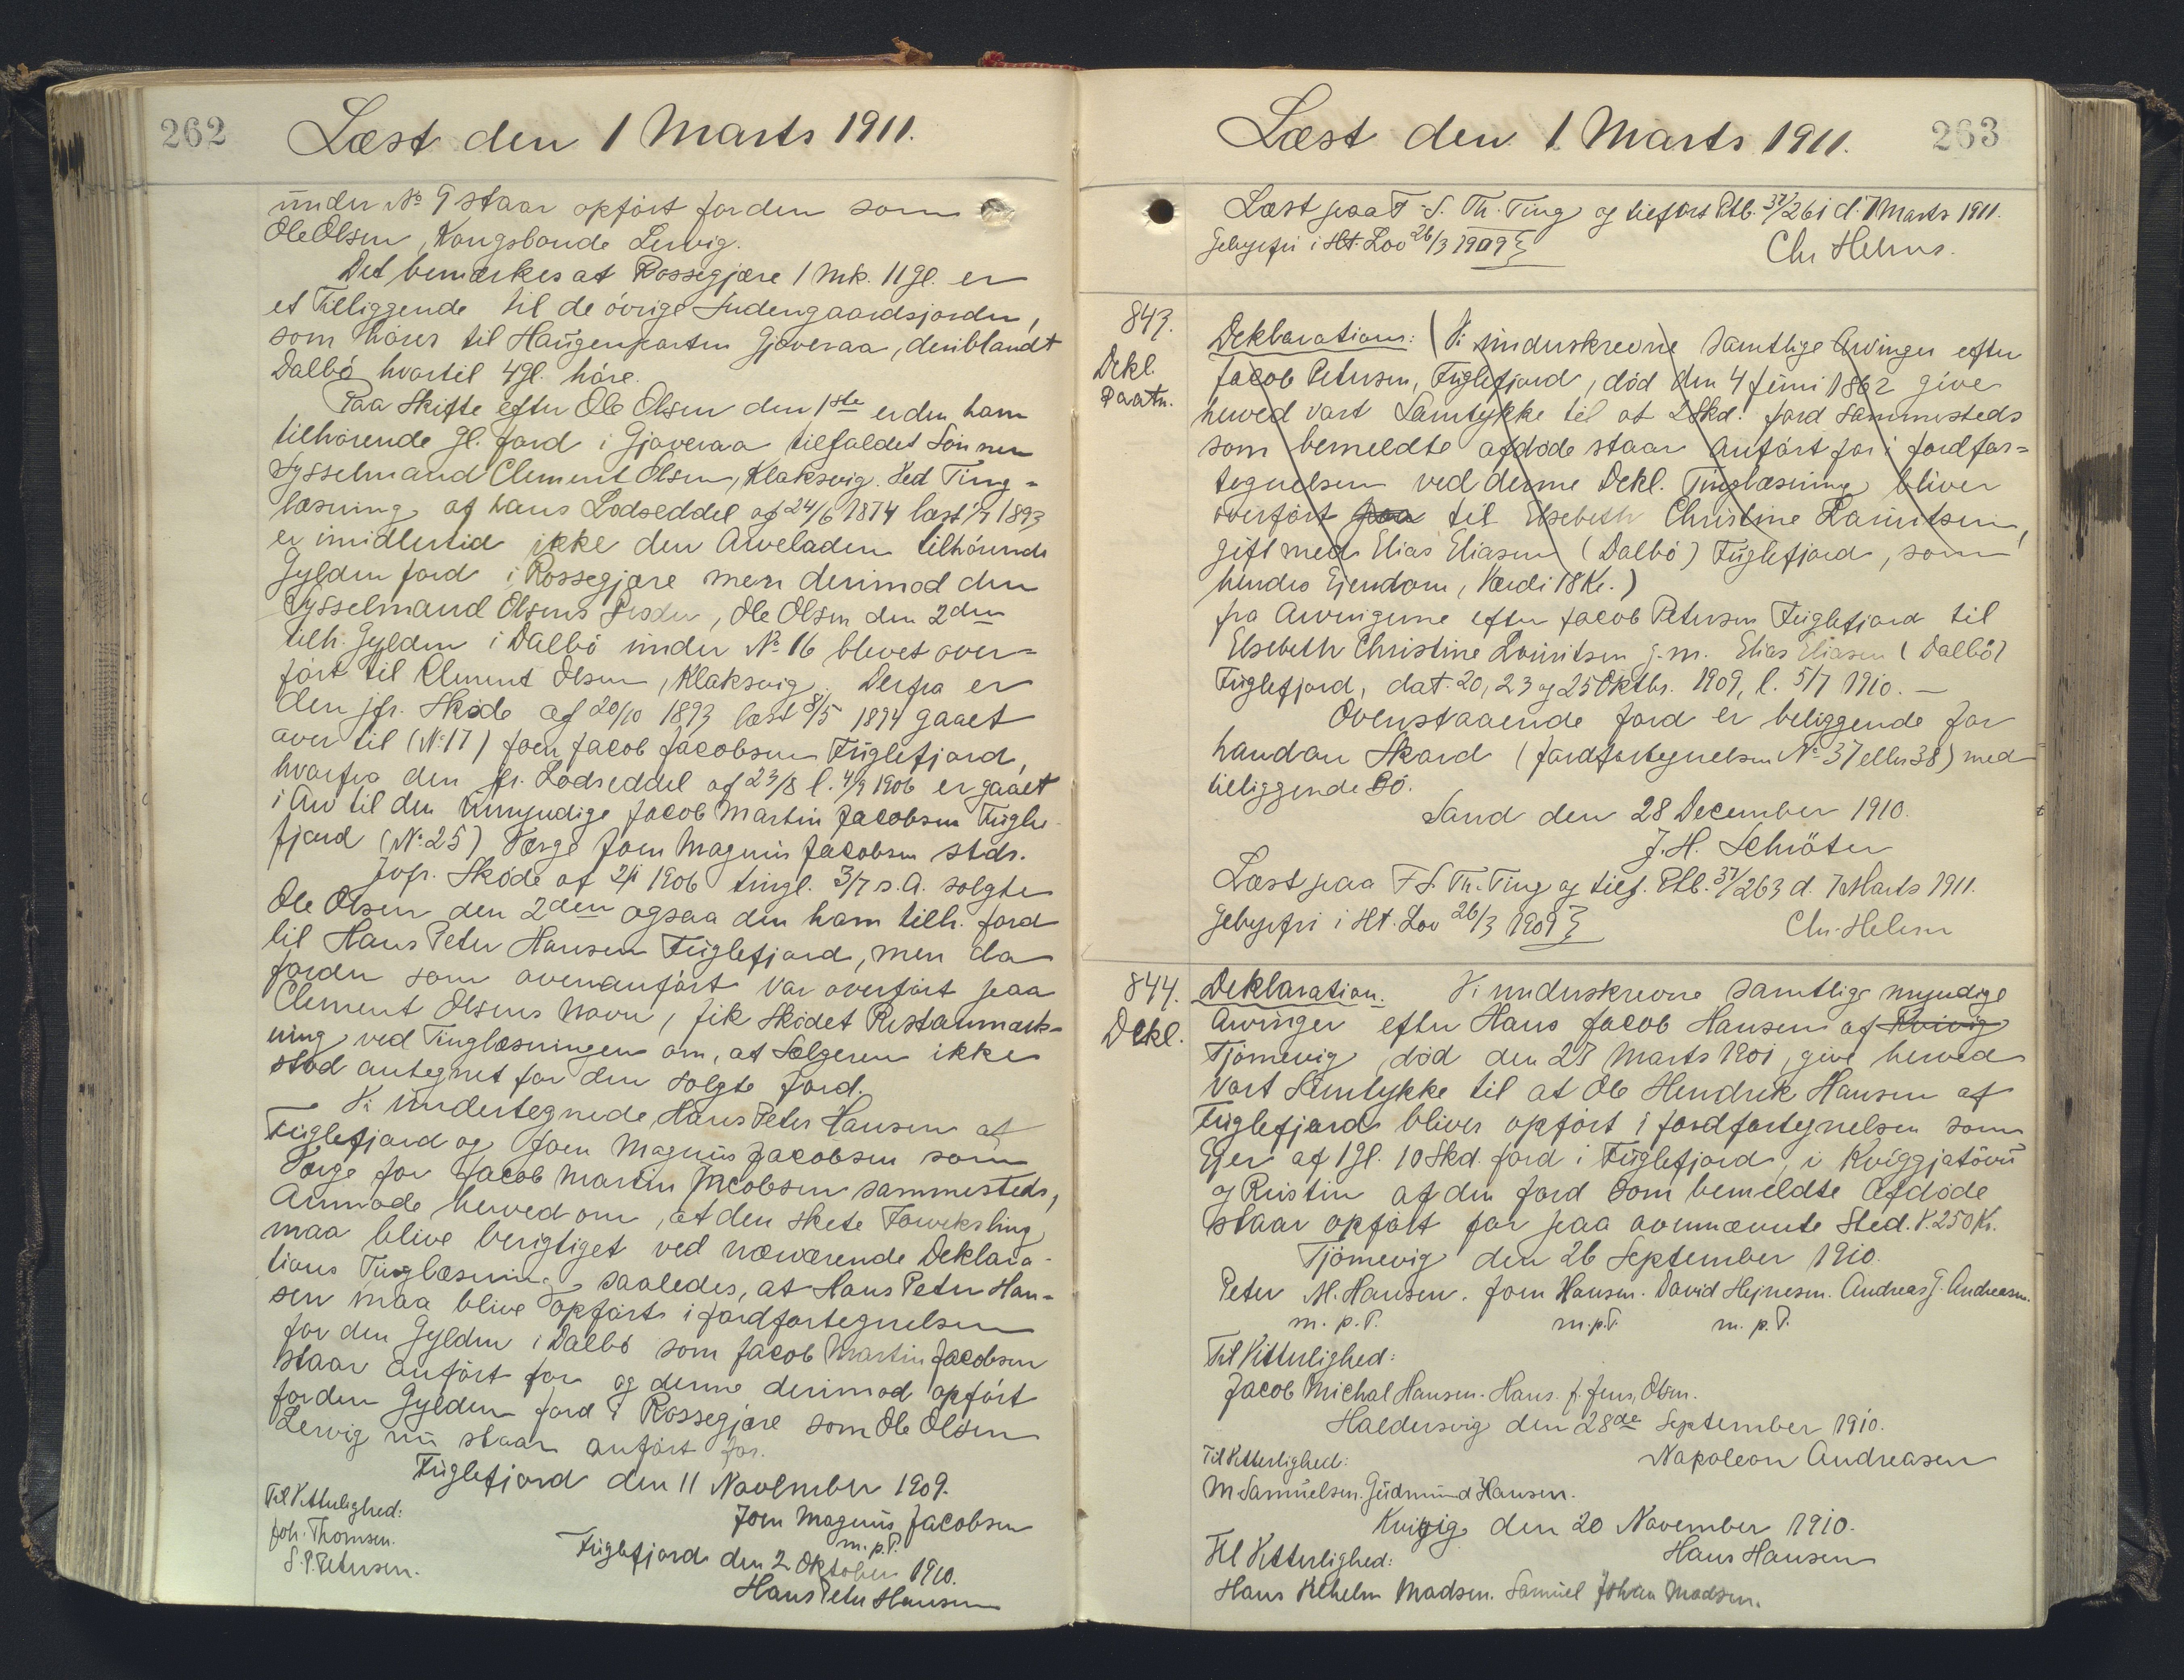 262
Læst den 1 Marts 1911.
under No 9 staar opført for den som
Ole Olsen, Kongsbonde Lervig.
Det bemærkes at Rossegjære 1 Mk. 11 gl. er
et Tilliggende til de øvrige Indengaardsjorder,
som hører til Haugenparten Gjøveraa, deriblandt
Dalbø hvortil 4 gl. høre.
Paa Skifte efter Ole Olsen den 1ste er den ham
tilhørende gl. Jord i Gjøveraa tilfaldet Sønnen
Sysselmand Clement Olsen, Klaksvig. Ved Ting-
læsning af hans Lodseddel af 24/6 1874 læst 1893
er imidlertid ikke den Arveladeren tilhørende
Gylden Jord i Rossegjære men derimod den
Sysselmand Olsens Broder, Ole Olsen den 2den
tilh. Gylden i Dalbø under No 16 blevet over-
ført til Clement Olsen, Klaksvig. Derfra er
den jfr. Skøde af 20/10 1893 læst 8/5 1894 gaaet
over til (No 17) Joen Jacob Jacobsen Fuglefjord,
hvorfra den jfr. Lodseddel af 23/8 l. 4/9 1906 er gaaet
i Arv til den umyndige Jacob Martin Jacobsen Fugle-
fjord (No 25) Værge Joen Magnus Jacobsen stds.
Jvfr. Skøde af 2/1 1906 tingl. 3/7 s. A. solgte
Ole Olsen den 2den ogsaa den ham tilh. Jord
til Hans Peter Hansen Fuglefjord, men da
Jorden som ovenanført var overført paa
Clement Olsens Navn, fik Skødet Retsanmærk-
ning ved Tinglæsningen om, at Sælgeren ikke
stod antegnet for den solgte Jord.
Vi undertegnede Hans Peter Hansen af
Fuglefjord og Joen Magnus Jacobsen som
Værge for Jacob Martin Jacobsen sammesteds,
Anmode herved om, at den skete Forveksling
maa blive berigtiget ved nærværende Deklara-
tions Tinglæsning, saaledes, at Hans Peter Han-
sen maa blive opført i Jordfortegnelsen
for den Gylden i Dalbø som Jacob Martin Jacobsen
staar anført for og denne derimod opført
for den Gylden Jord i Rossegjære som Ole Olsen
Lervig nu staar anført for.
Fuglefjord den 11 November 1909.
Til Vitterlighed:
Joen Magnus Jacobsen
Joh. Thomsen.
m. p. P.
S. P. Petersen.
Fuglefjord den 2 Oktober 1910.
Hans Peter Hansen
Læst den 1 Marts 1911.
263
Læst paa F. S. Th. Ting og tilført Ptb. 37/261 d. 1 Marts 1911.
Gebyrfri i Ht. Lov 26/3 1909
Chr Helms.
843.
Dekl.
Paatn.
Deklarations: (Vi underskrevne samtlige Arvinger efter
Jacob Petersen, Fuglefjord, død den 4 Juni 1862 give
herved vort Samtykke til at 2 Skd. Jord sammesteds
som bemeldte afdøde staar anført for i Jordfor=
tegnelsen ved denne Dekl. Tinglæsning bliver
overført paa til Elsebeth Christine Lauritsen,
gift med Elias Eliasen (Dalbø) Fuglefjord, som
hendes Ejendom, Værdi 18 Kr.)
fra Arvingerne efter Jacob Petersen Fuglefjord til
Elsebeth Christine Lauritsen g. m. Elias Eliasen (Dalbø)
Fuglefjord, dat. 20, 23 og 25 Oktbr. 1909, l. 5/7 1910. —
Ovenstaaende Jord er beliggende for
handan Skard (Jordfortegnelsen No 37 eller 38) med
tilliggende Bø.
Sand den 28 December 1910.
J. H. Schrøter
Læst paa F. S. Th. Ting og tilf. Ptb. 37/263 d. 1 Marts 1911.
Gebyrfri i Ht. Lov 26/3 1909
Chr. Helms
844.
Dekl.
Deklaration. Vi underskrevne samtlige myndige
Arvinger efter Hans Jacob Hansen af Kvivig
Tjørnevig, død den 23 Marts 1901, give herved
vort Samtykke til at Ole Hendrik Hansen af
Fuglefjord bliver opført i Jordfortegnelsen som
Ejer af 1 gl. 10 Skd. Jord i Fuglefjord, i Kviggjatøvu
og Ristin af den Jord som bemeldte Afdøde
staar opført for paa ovennævnte Sted. V. 250 Kr.
Tjørnevig den 26 September 1910.
Peter M. Hansen. Joen Hansen. David Hejnesen. Andreas J. Andreasen.
m. p. P. m. p. P. m. p. P.
Til Vitterlighed:
Jacob Michal Hansen. Hans. J. Jens, Olsen.
Haldersvig den 28de September 1910.
Til Vitterlighed:
Napoleon Andreasen
M Samuelsen. Gudmund Hansen.
Kvivig den 20 November 1910.
Til Vitterlighed:
Hans Hansen
Hans Vilhelm Madsen. Samuel Johan Madsen.